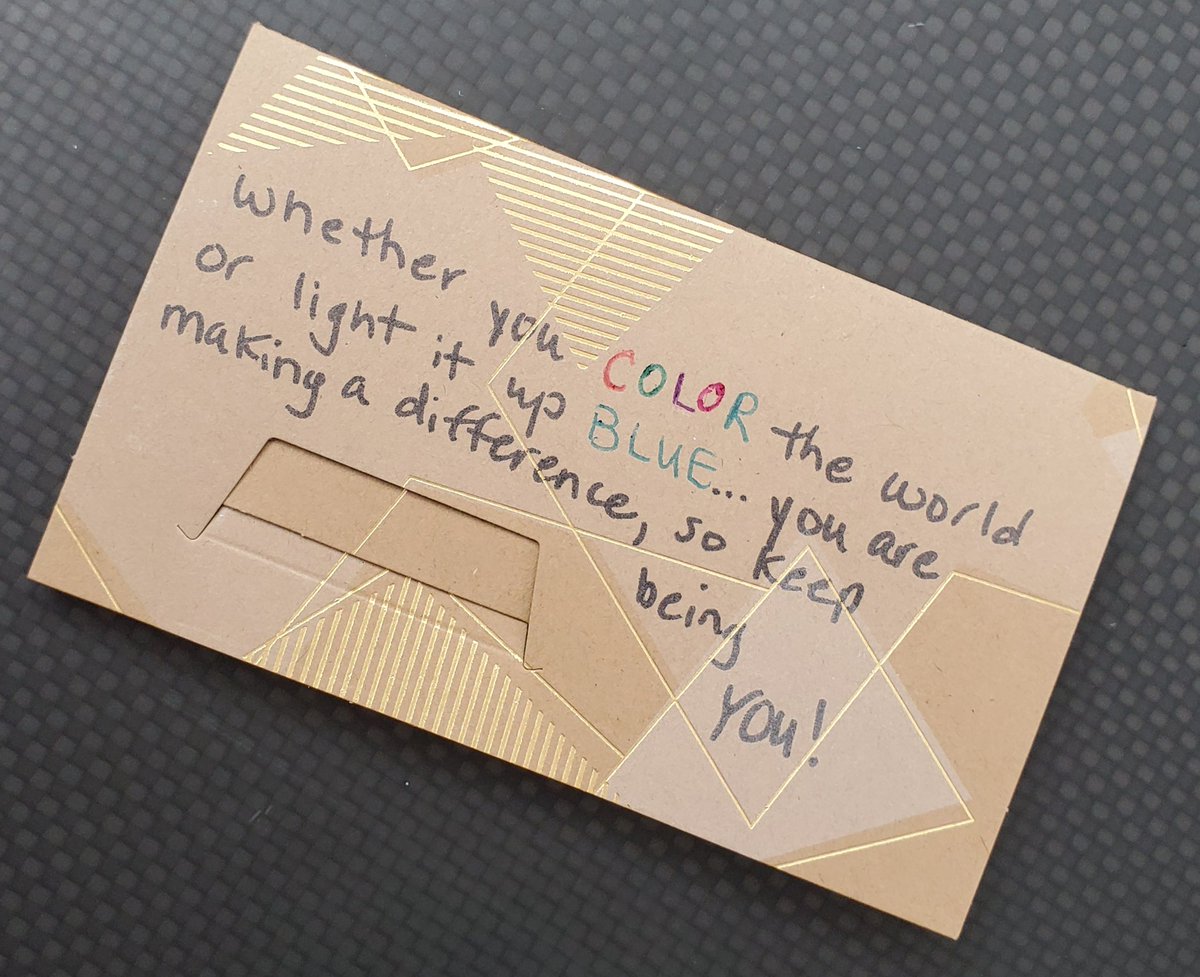 Whether you COLOR the world
or light it up BLUE... you are
making a difference, so keep
being
YOU!